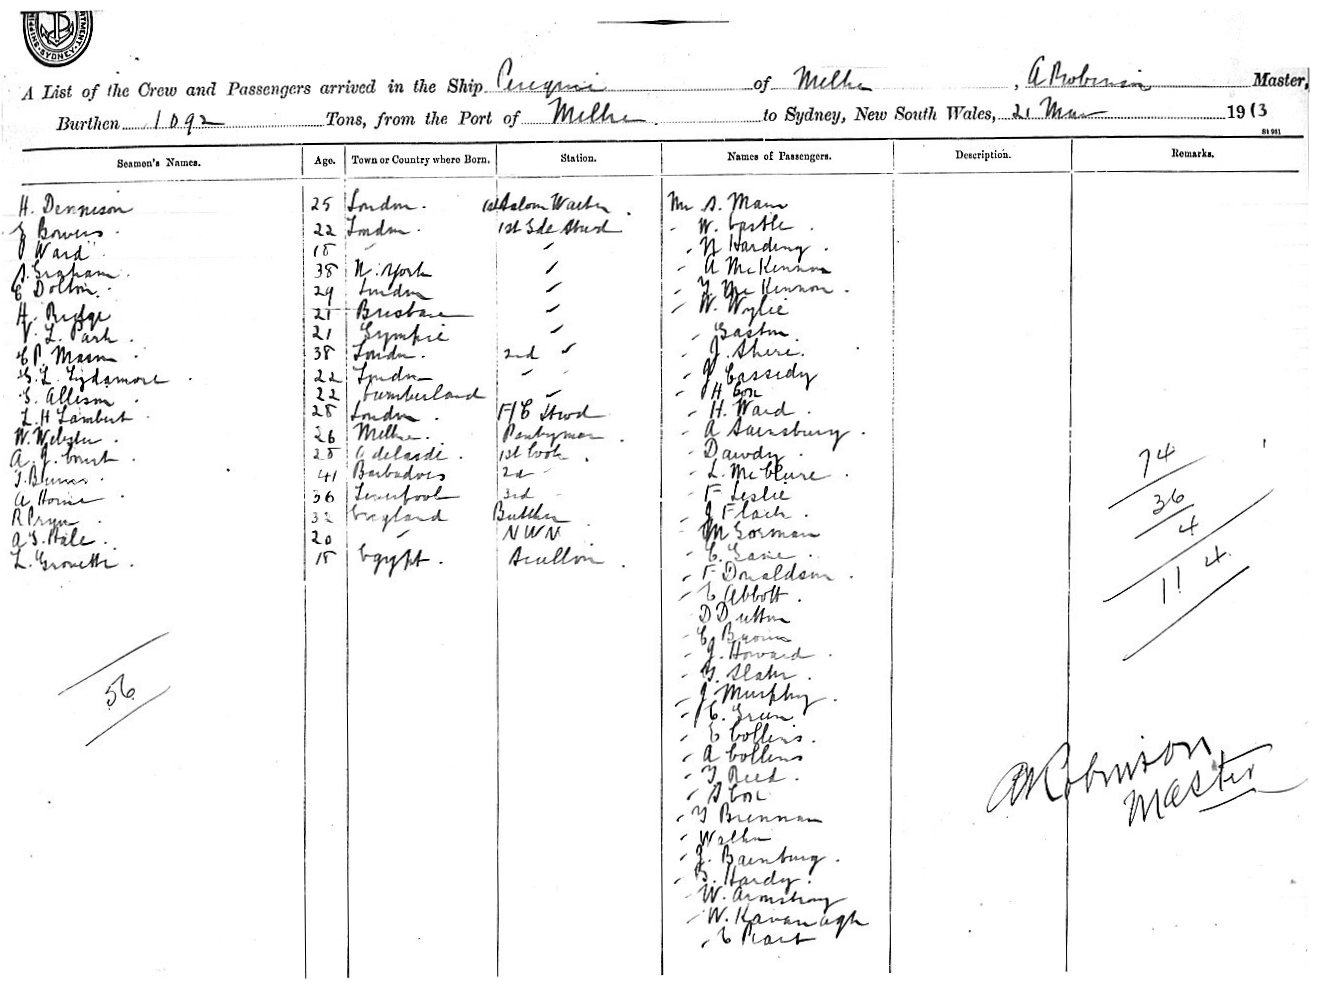 SHIPPING DEPARTMENT SYDNEY
A List of the Crew and Passengers arrived in the Ship of Melbne, A Robinson Master,
Burthen 1092 Tons, from the Port of Melbne. to Sydney, New South Wales, 21 Mar 1913
Seamen's Names. Age. Town or Country where Born. Station. Names of Passengers. Description. Remarks.
H. Dennison 25 London. 1st Saloon Waiter. Mr S. Mann
Bowers 22 London. 1st Sde Stwd W. Castle
Ward 18 " " N Harding
S. Graham 38 N. York " A McKennon
E Dolton. 29 London " McKennon.
H. Rudge 21 Brisbane " W. Wylie
V. L. Park 21 Gympie " Gaston
E P. Mason 38 London. 2nd " J. Shere.
G. L. Lydamore 22 London " " J Cassidy
S. Allison 22 Cumberland " H Cox
L. H Lambert 28 London F/C Stwd H. Ward
W. Webster 26 Melbne. Pantryman. A Sainsbury.
A. J. 28 Adelaide. 1st Cook. Dawdy.
41 Barbadoes 2nd " L. McClure.
A Horne 36 Liverpool 3rd " F Leslie
R Pryn 32 England Butcher J Flack.
A S. Hale. 20 " NWN M Gorman
L. 18 Egypt. Scullion. C.
F Donaldson.
E Abbott.
D Dutton
C Brown
J. Howard.
G. Slater.
J Murphy.
C. Green
E Collins.
A Collins
T Reed.
S Cox
T Brennan
Walker
J. Bainbury.
G. Hardy.
W. Armstrong
W. Kavanagh
E Peart
56
74
36
4
114
A Robinson
Master
S1 931